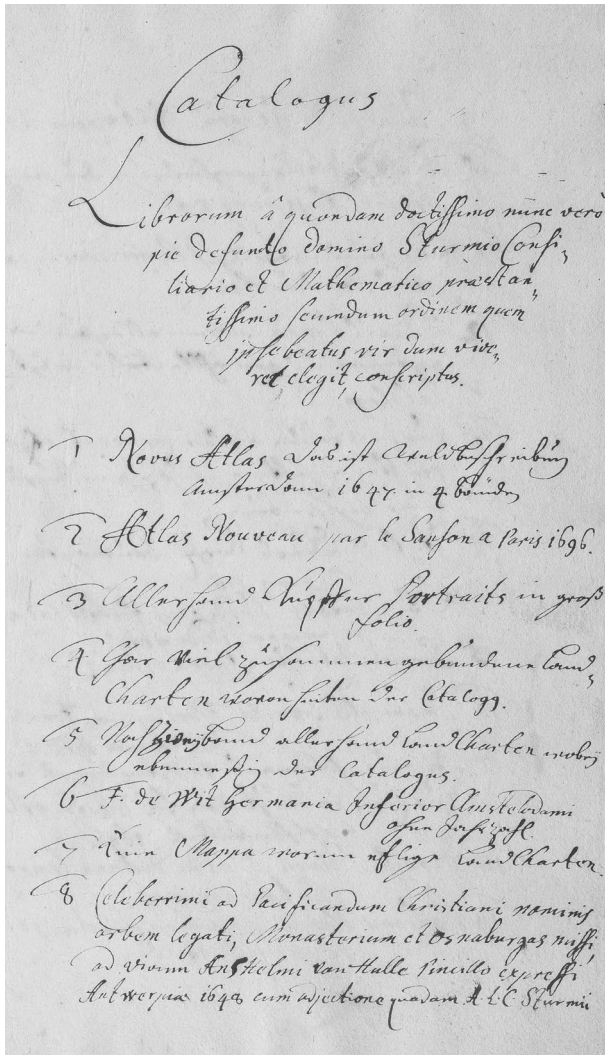 Catalogus
Librorum â quondam doctissimo nunc vero
pie defuncto domino Sturmio Consi-
liario et Mathematico præstan-
tissimo secundum ordinem quem
ipse beatus vir dum vive-
ret, elegit, conscriptus.
1 Novus Atlas das ist Weldbeschreibung
Amsterdam 1647. in 4 bänden
2 Atlas Nouveau par le Sanson a Paris 1696.
3 Allerhand Kupffer Portraits in groß
folio.
4 Gar viel zusammen gebundene Land-
Charten der Catalogg.
5 Noch band allerhand Land Charten wobey
der Catalogus.
6 F. de Wit Germania Inferior Amstelodami
ohne Jahrzahl
7 Eine Mappa worinn etlige Land Charten.
8 Celeberrimi ad Pacificandum Christiani nominis
orbem legati, Monasterium et Osnaburgas missi,
ad vivum Anshelmi van Hulle Pincillo expressi
Antwerpiæ 1648 cum adjectione quadam A L C Sturmii